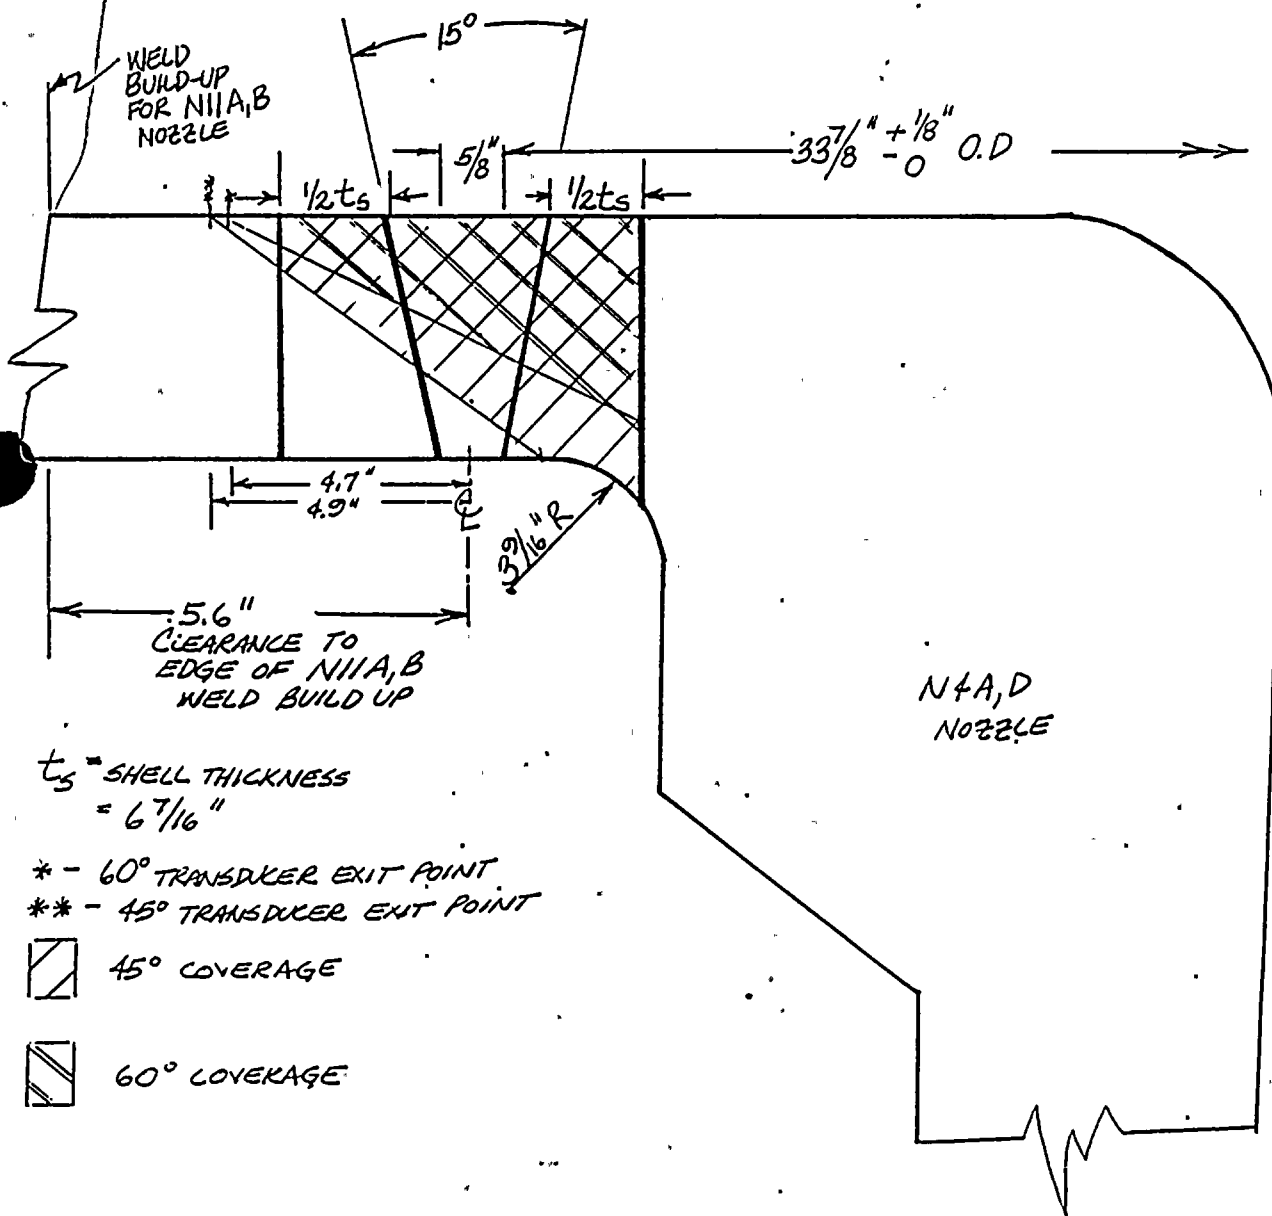 15°
WELD
BUILD-UP
FOR N11A,B
NOZZLE
5/8"
33 7/8" + 1/8" - 0 O.D
** * 1/2 ts
1/2 ts
4.7"
4.9"
℄
3 9/16" R
5.6"
CLEARANCE TO
EDGE OF N11A,B
WELD BUILD UP
N4A,D
NOZZLE
ts = SHELL THICKNESS
= 6 7/16"
* - 60° TRANSDUCER EXIT POINT
** - 45° TRANSDUCER EXIT POINT
45° COVERAGE
60° COVERAGE